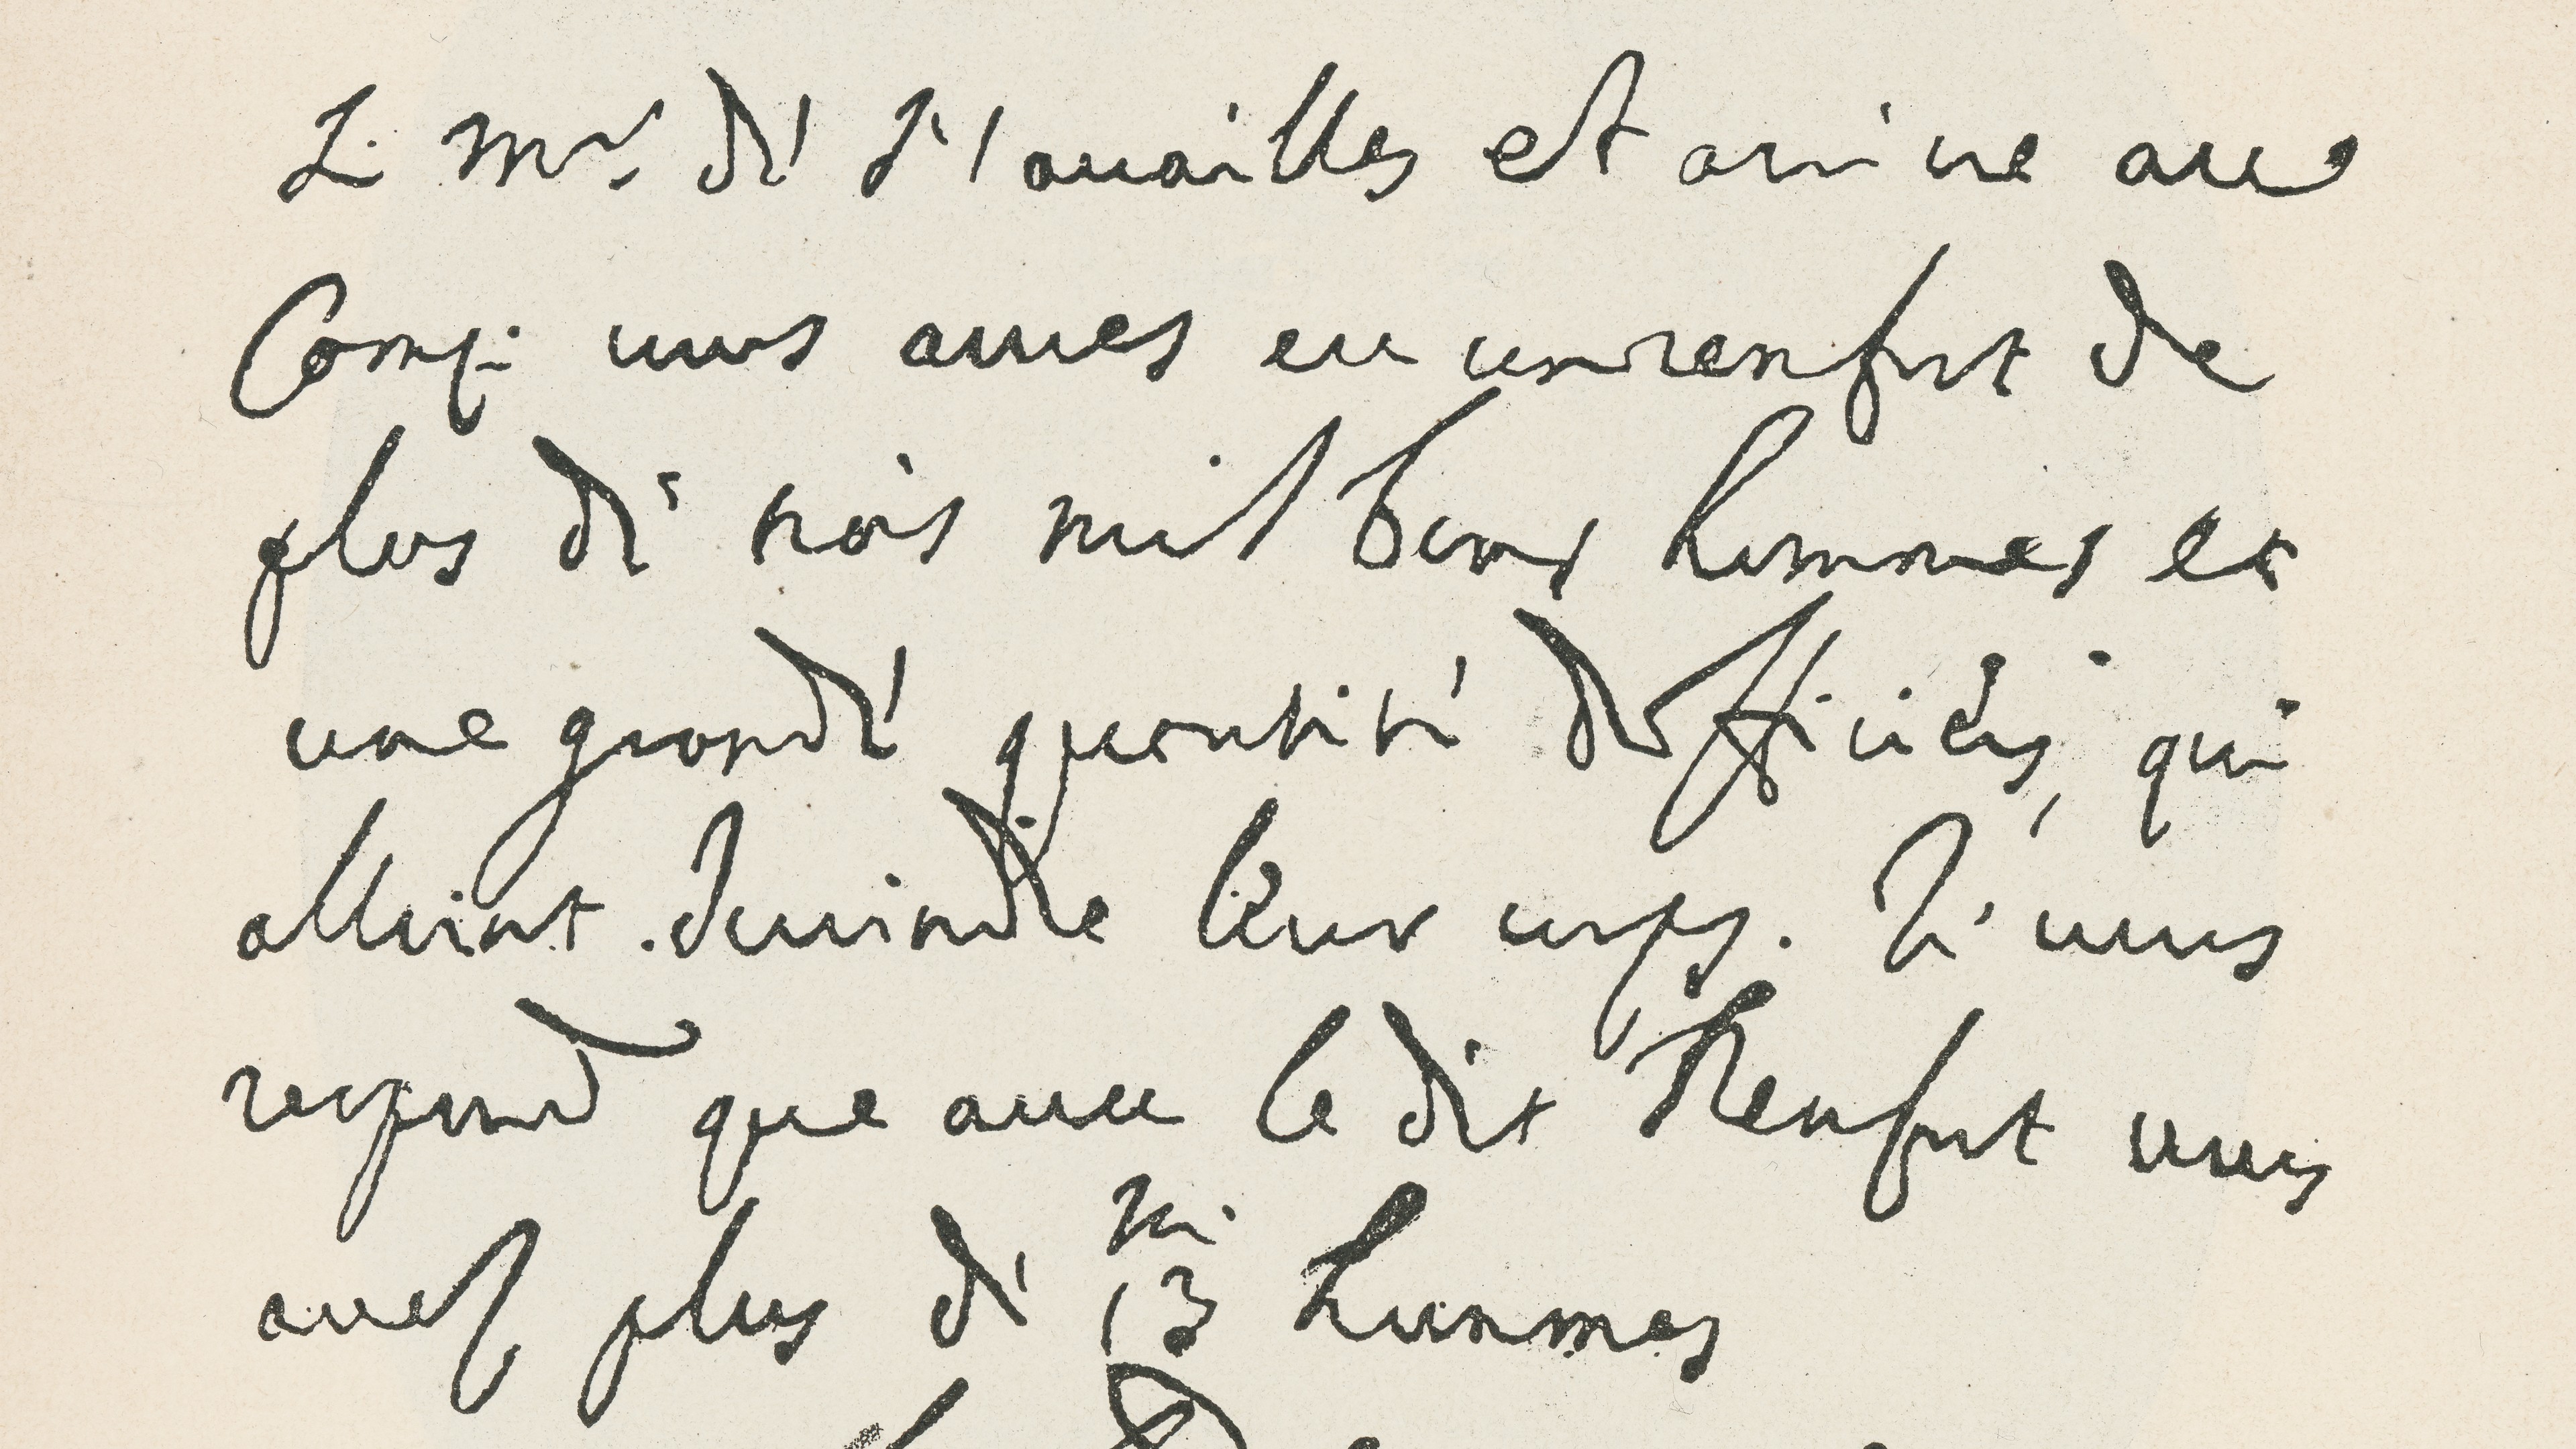 Le Mis de Nouailles est arrive au
Camp vous aves eu un renfort de
plus de trois mil bons hommes et
une grande quantité dofficiers, qui
alloint Juindre leur corps. Je vous
respond que avec le dit Renfort vous
avez plus de 13 mi hommes